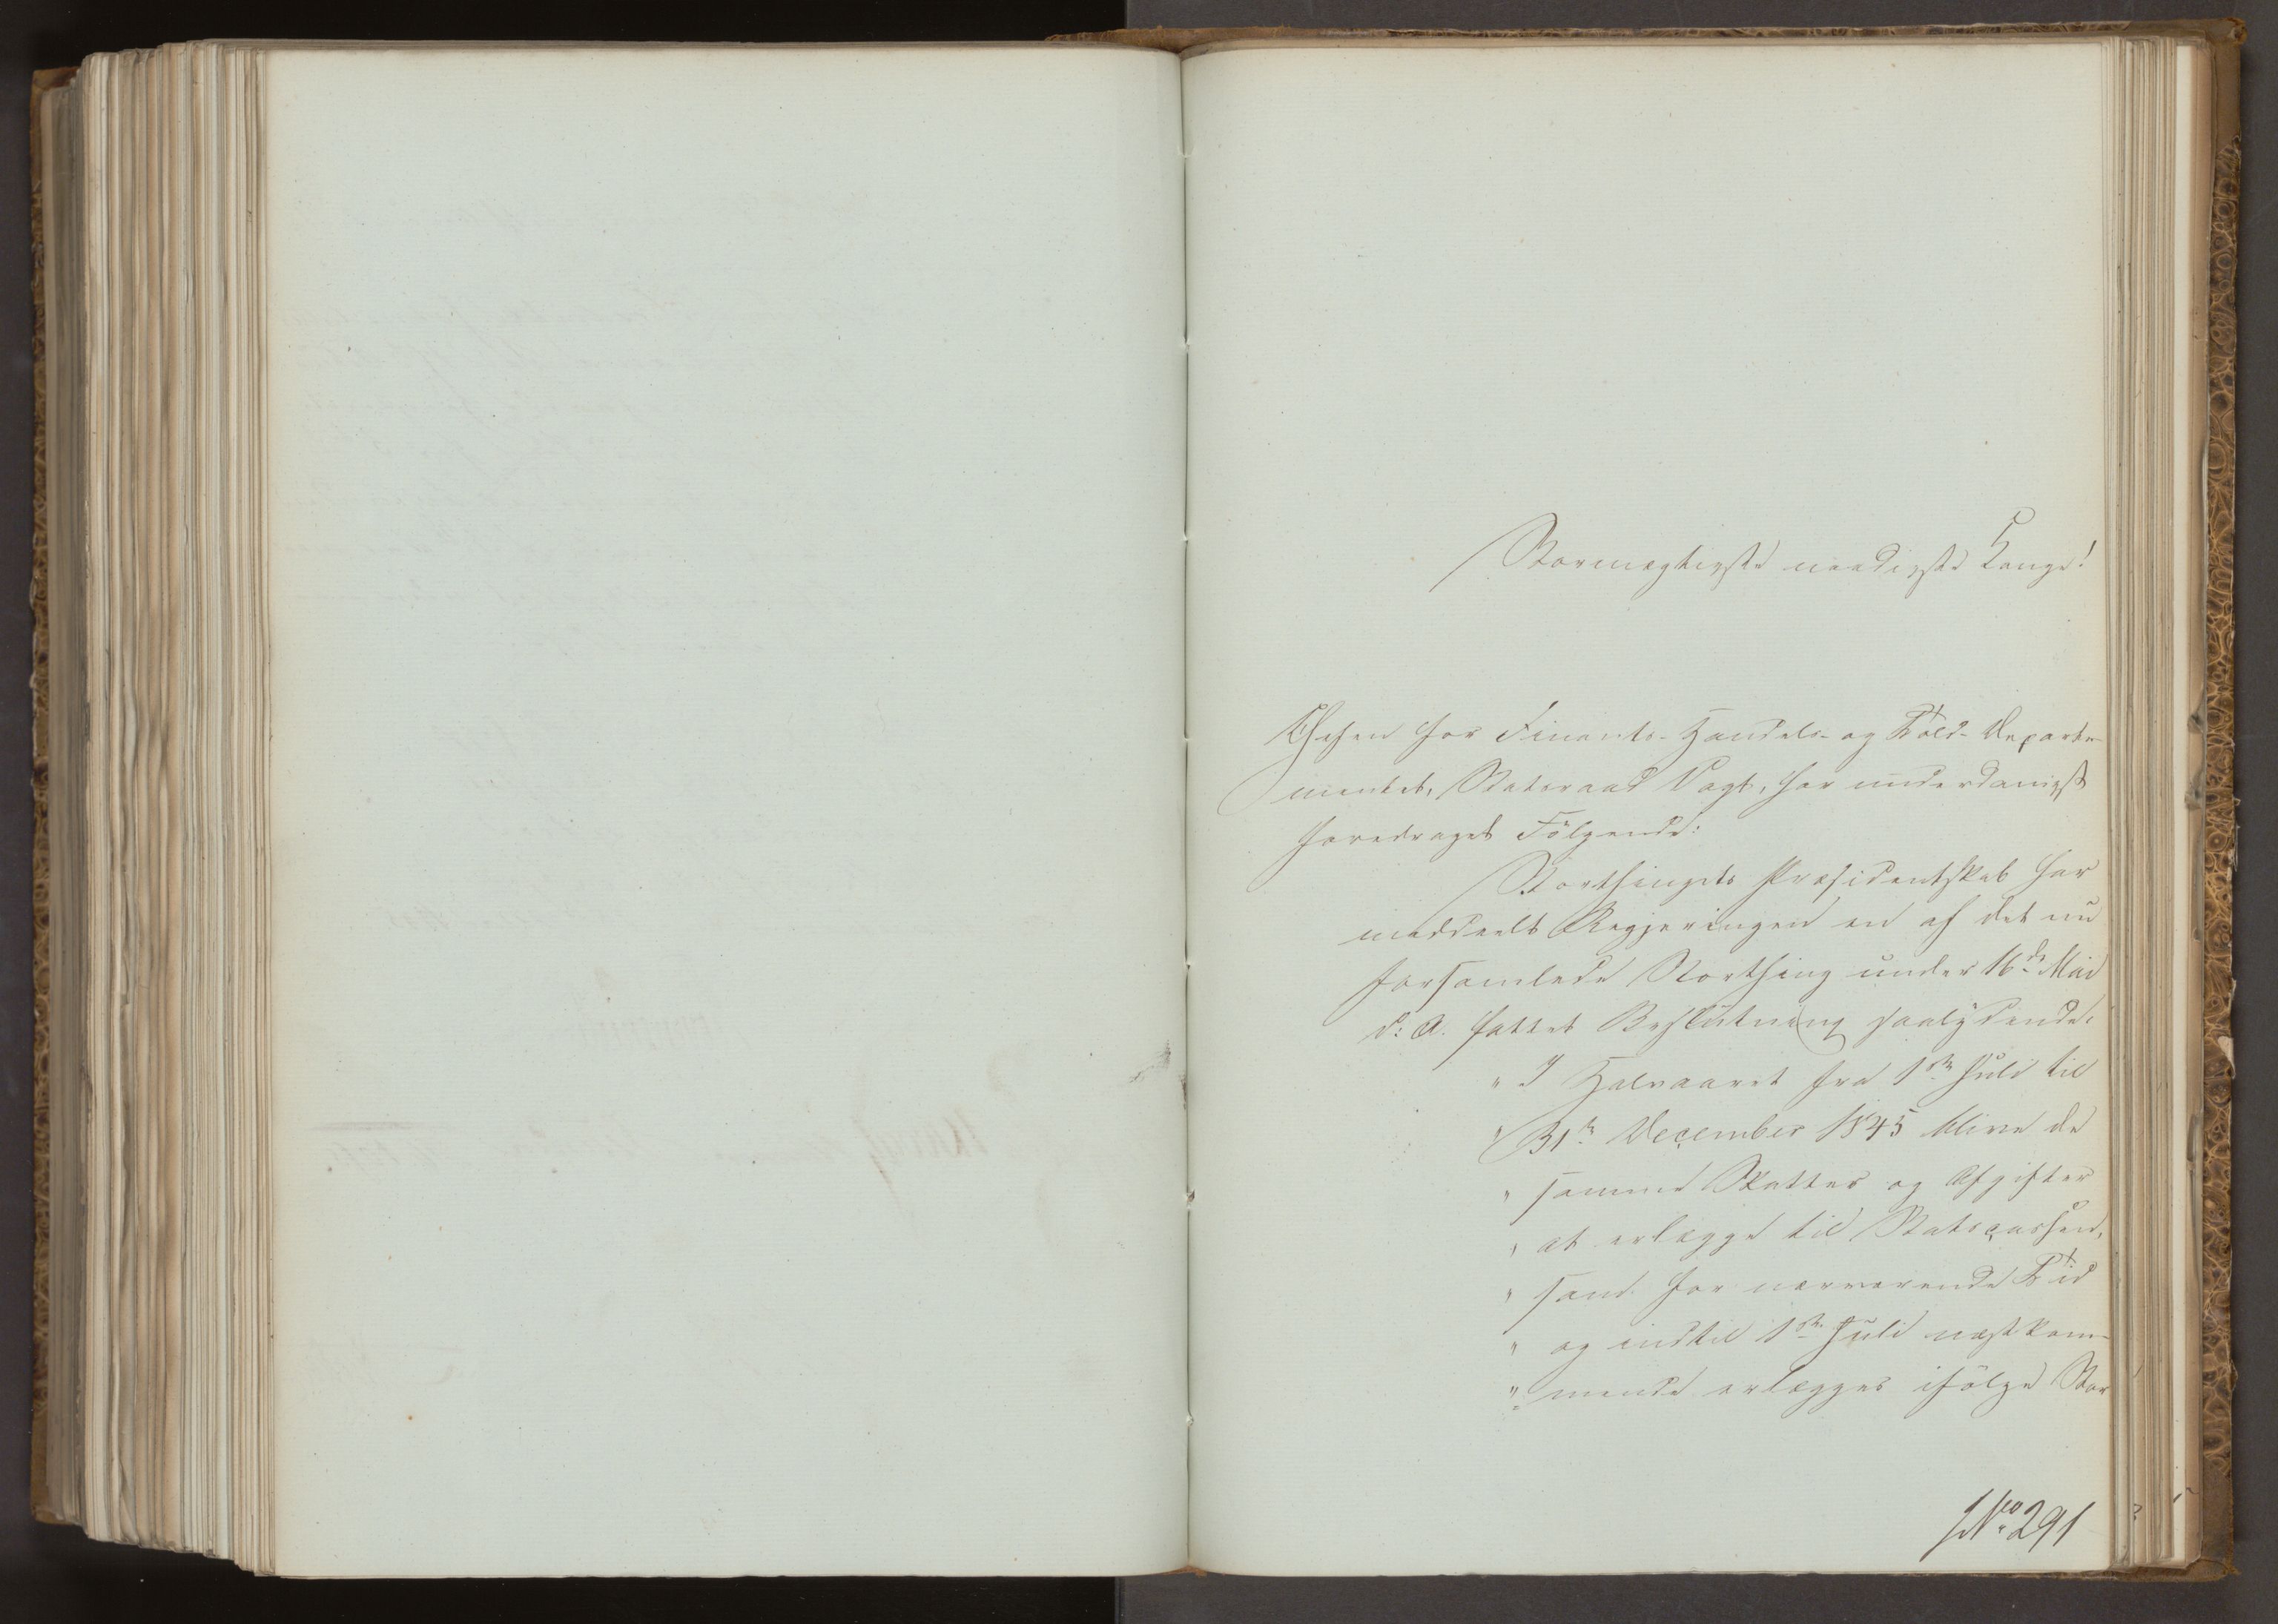 Stormægtigste naadigste Konge!
Chefen for Finants- Handels- og Told-Departe-
mentet, Statsraad Vogt, har underdanigst
foredraget Følgende:
Storthingets Præsidentskab har
meddeelt Regjeringen en af det nu
forsamlede Storthing under 16de Mai
d: A. fattet Beslutning saalydende:
" I Halvaaret fra 1ste Juli til
" 31te December 1845 blive de
" samme Skatter og Afgifter
" at erlægge til Statscassen,
" som for nærværende Tid
" og indtil 1ste Juli næstkom-
" mende erlægges ifølge Stor
No. 291